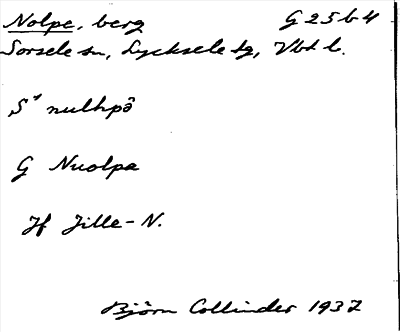 Nolpe, berg G 25 b 4
Sorsele sn, Lycksele tg, Vbt l.
S⁴ nulhpâ
G Nuolpa
Jf Jille-N.
Björn Collinder 1937